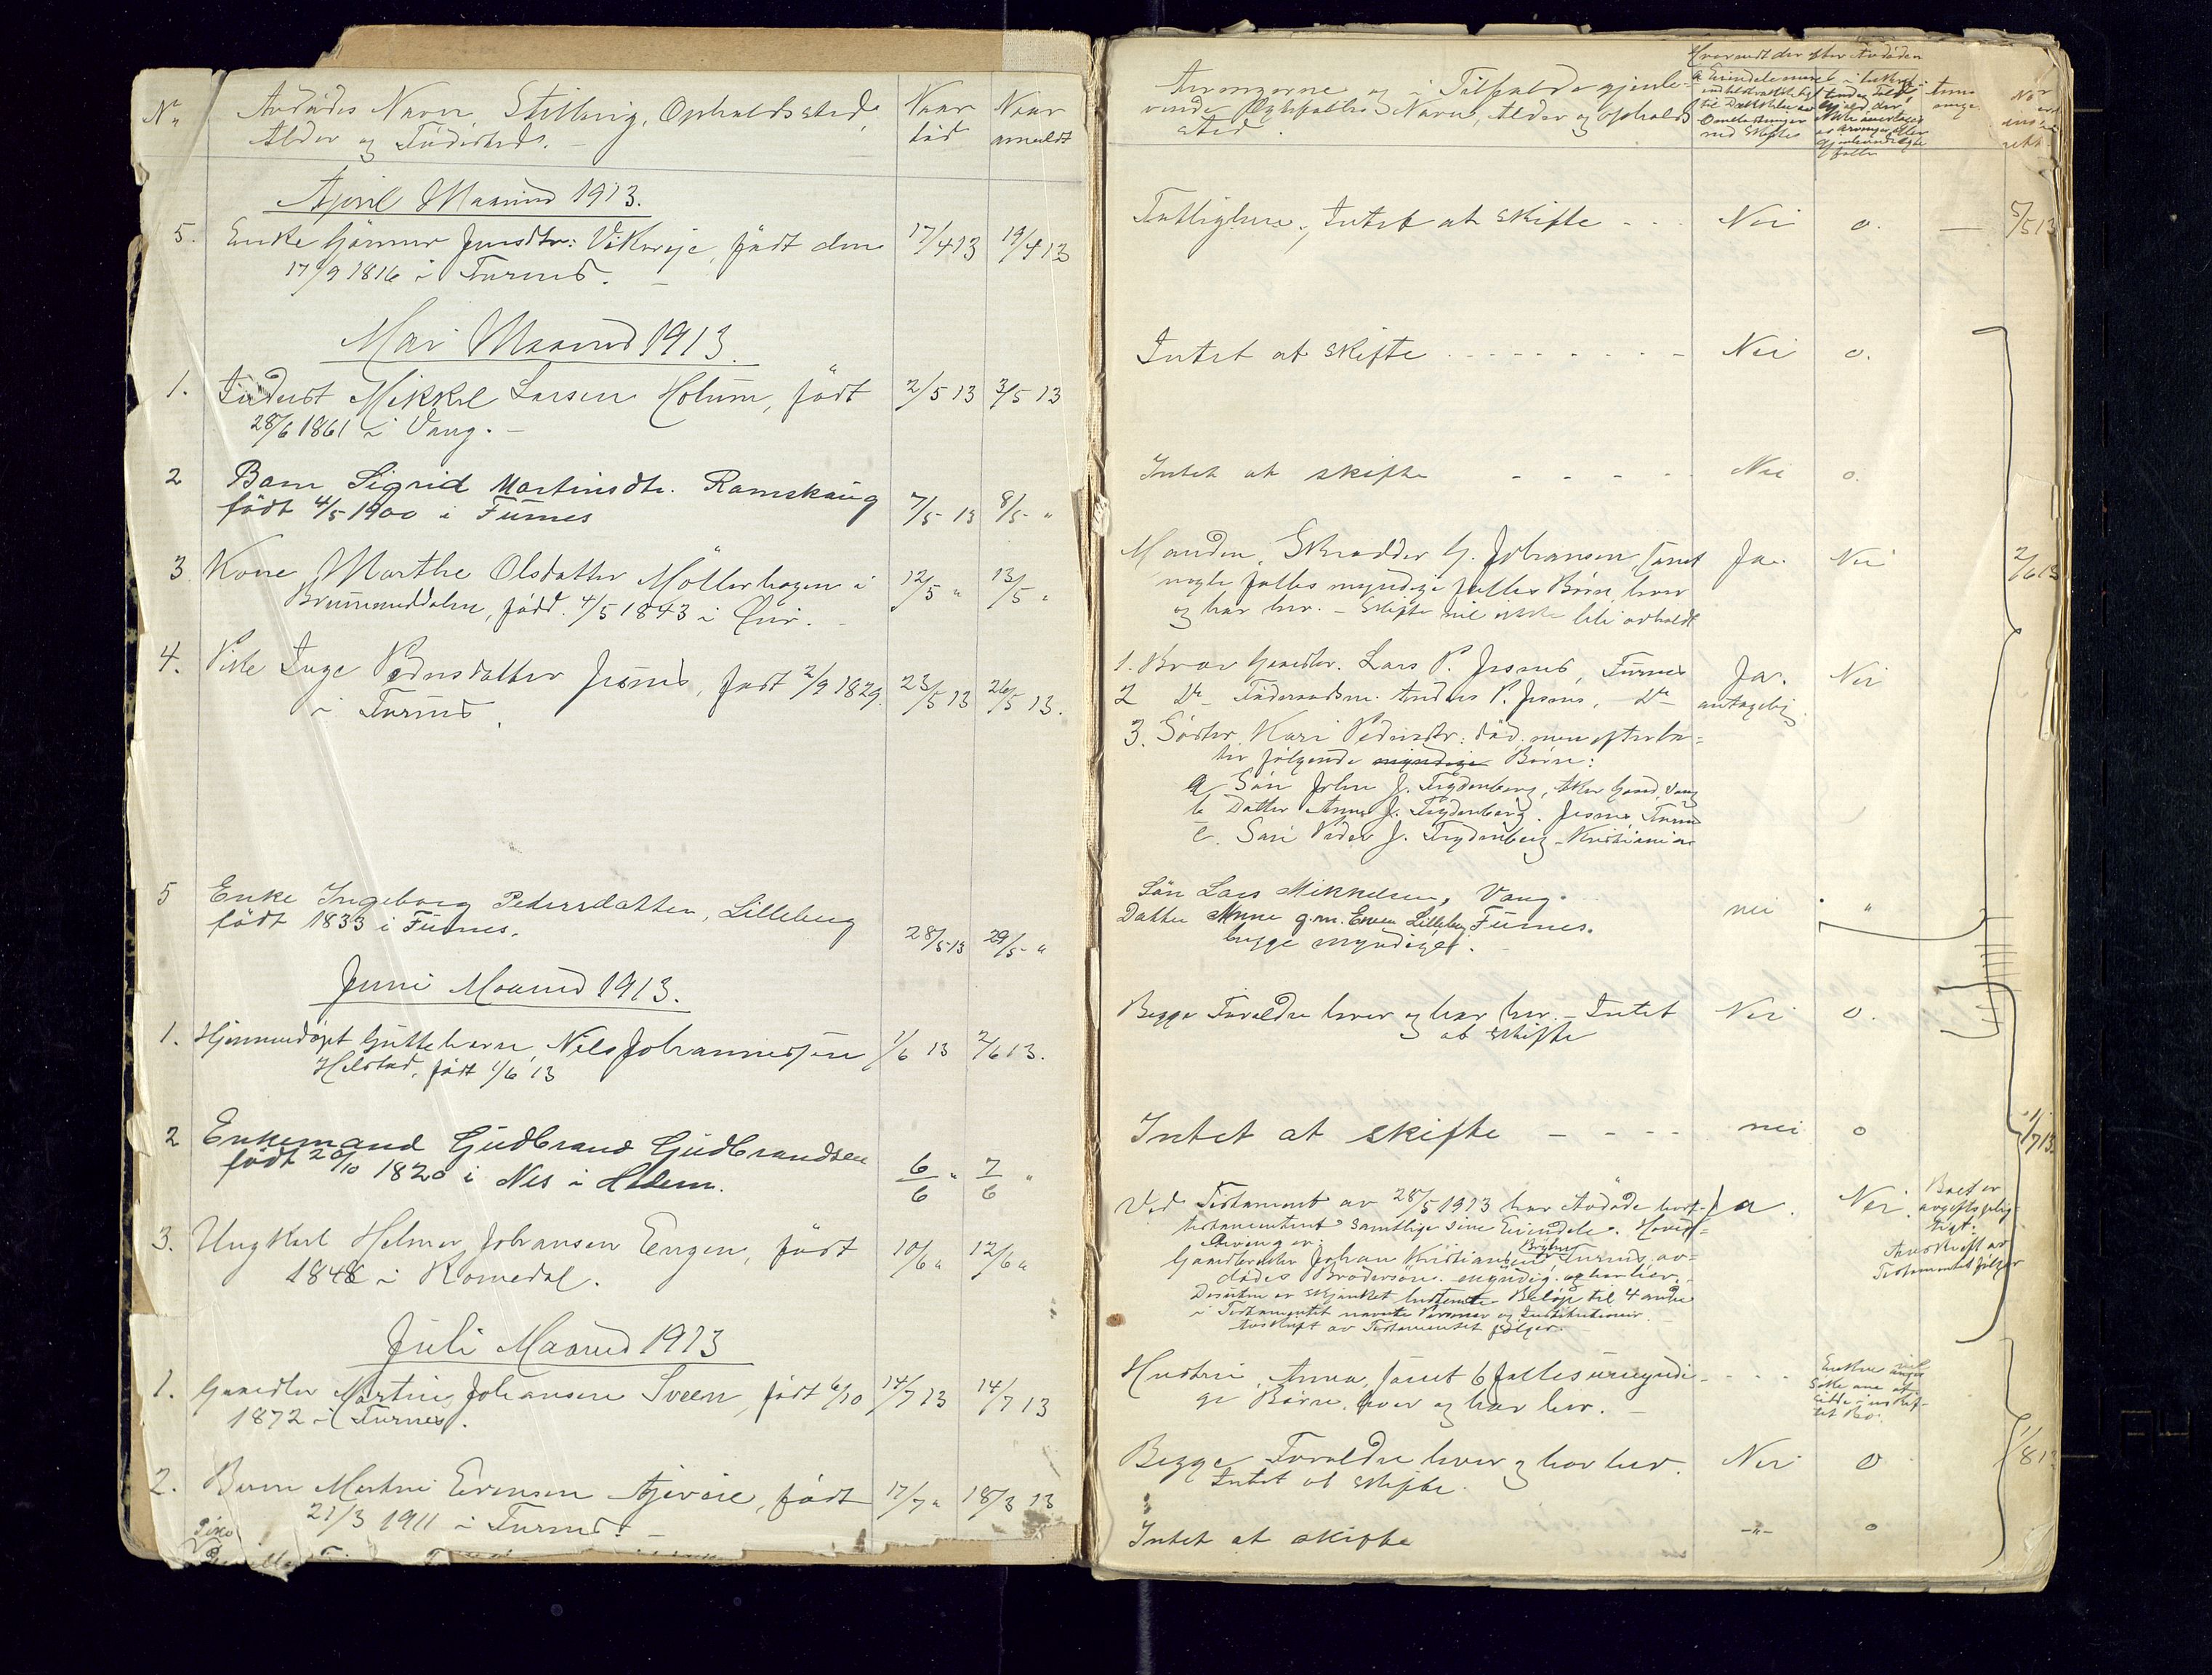 No
Avdödes Navn, Stilling, Opholdssted,
Alder og Födested.
Naar
död
Naar
anmeldt
April Maaned 1913.
5. Enke Gönner Jensdtr: Vikveje, født den 17/4 13 19/4 13
17/9 1816 i Furnes.
Mai Maaned 1913.
1. Inderst Mikkel Larsen Holum, født 2/5 13 3/5 13
28/6 1861 i Vang.
2 Barn Sigrid Martinsdtr. Ramskaug
født 4/5 1900 i Furnes 7/5 13 8/5 "
3 Kone Marthe Olsdatter Möllerhagen i 12/5 " 13/5 "
Brummuddalen, född. 4/5 1843 i Öier.
4. Pike Inge Pedersdatter Jesnes, født 2/9 1829. 23/5 13 26/5 13.
i Furnes.
5 Enke Ingeborg Pedersdatter, Lilleberg
født 1833 i Furnes. 28/5 13 29/5 "
Juni Maaned 1913.
1. Hjemmedöpt Guttebarn, Nils Johannessen 1/6 13 2/6 13.
Helstad, født 1/6 13
2 Enkemand Gudbrand Gudbrandsen
født 20/10 1820 i Nes i Hedem. 6/6 " 7/6 "
3. Ungkarl Helmer Johansen Engen, født 10/6 " 12/6 "
1848 i Romedal.
Juli Maaned 1913
1. Gaardbr Martin Johansen Sveen, født 6/10 14/7 13 14/7 13
1872 i Furnes.
2. Barn Martin Evensen Gjeveie, født 17/7 " 18/3 13
21/3 1911 i Furnes.
Pike
Arvingerne og i Tilfælde gjenle-
vende Ægtefælles Navn, Alder og Opholds
sted.
Hvorvidt der efter Avdöde
Fattiglem, Intet at skifte - - Nei 0. — 5/5 13
Intet at skifte - - - - Nei 0.
Intet at skifte - - - - Nei 0.
Manden, Skrædder G. Johansen, samt Ja. Nei 2/6 13
nogle fælles myndige fælles Börn, hver
og har her. - Skifte vil ikke bli avholdt
1. Bror Gaardbr. Lars P. Jesnes, Furnes Ja. Nei
2 Do Föderaadsm. Anders P. Jesnes, Do antagelig.
3. Söster Kari Pedersdtr: död. men efterla-
ter følgende myndige Börn:
a Sön John J. Frydenberg, Aker Gaard, Vang
b Datter Anne J. Frydenberg. Jesnes Furnes
c. Sön Peder J. Frydenberg - Kristiania
Sön Lars Mikkelsen, Vang.
Datter Anne g.m. Even Lilleberg Furnes. nei "
begge myndige.
Begge Foreldre lever og har her. - Intet Nei 0.
at skifte
Intet at skifte - - - - nei 0 1/7 13
Ved Testament av 28/5 1913 har Avdöde bort- Ja. Nei. Boet er
testamenteret samtlige sine Eiendele. Hoved- avgiftsplig-
arving er: tigt.
Gaardbruker Johan Kristiansen Furnes, av- Avskrift av
dödes Brodersön. myndig og har her. Testamentet følger
Desuten er skjenket bestemte Belöp til 4 andre
i Testamentet nævnte Personer og Institutioner.
Avskrift av Testamentet følger.
Hustru, Anna, samt 6 fælles umyndi- - - - Enken vil
ge Börn, lever og har her.
Begge Foreldre lever og har her. Nei 0 1/8 13
Intet at skifte.
Intet at skifte -"- 0